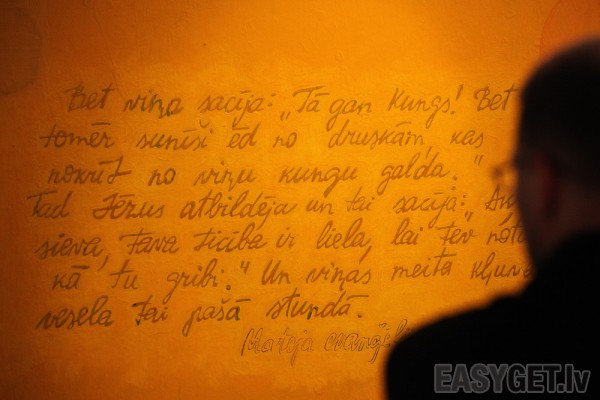 Bet viņa sacīja: „Tā gan Kungs! Bet
tomēr sunīši ēd no druskām, kas
nokrīt no viņu kungu galda."
Tad Jēzus atbildēja un tai sacīja:
sieva, tava ticība ir liela, lai tev
kā tu gribi." Un viņas meita
vesela tai pašā stundā.
Mateja
EASYGET.lv